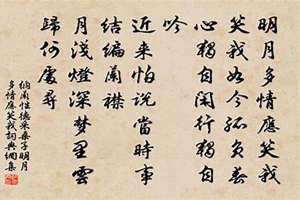 明月多情應笑我
笑我如今孤負春
心獨自閑行獨自
吟
近来怕說當時事
結編蘭襟
月淺燈深梦里雲
歸何處尋
納蘭性德采桑子明月
多情應笑我詞典網集